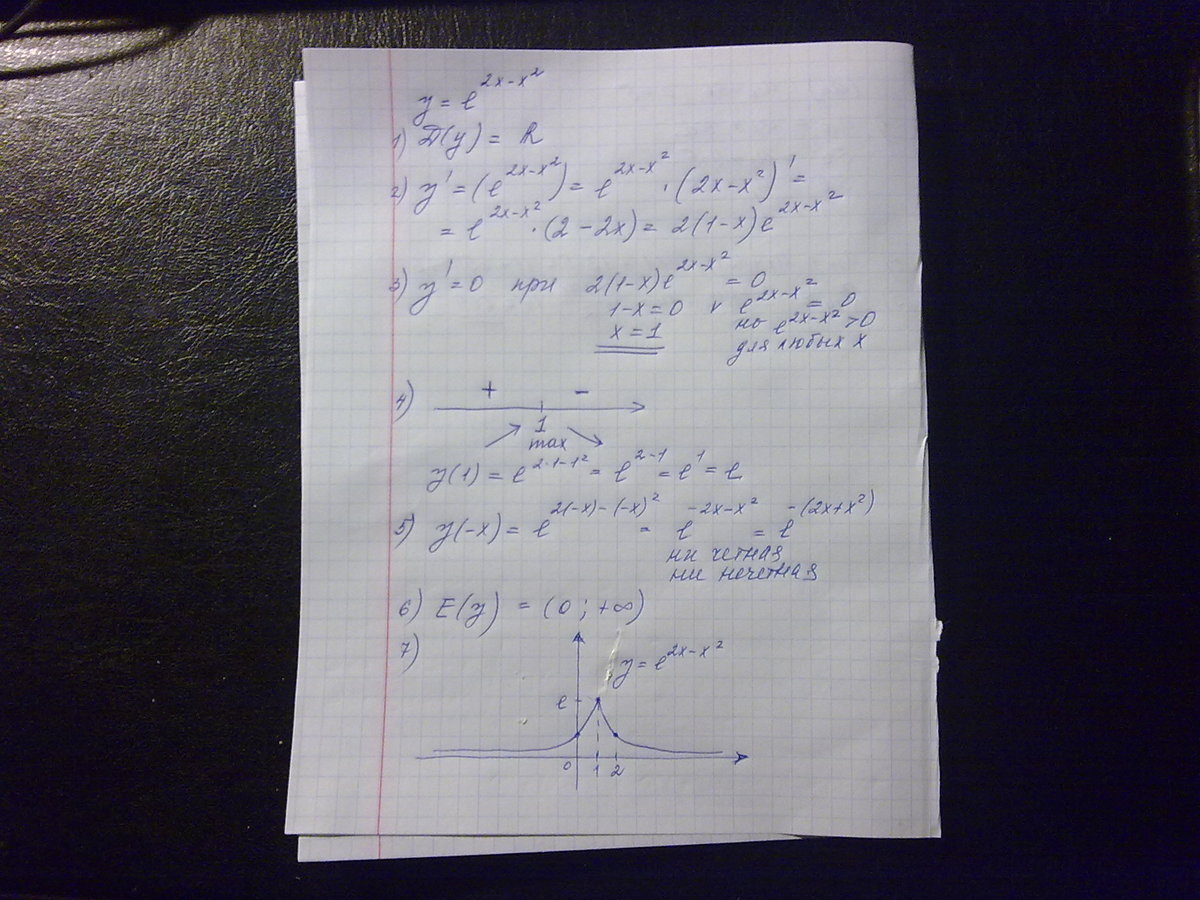 y = e^{2x-x^2}
1) D(y) = R
2) y' = (e^{2x-x^2}) = e^{2x-x^2} · (2x-x^2)' =
= e^{2x-x^2} · (2-2x) = 2(1-x)e^{2x-x^2}
3) y' = 0 при 2(1-x)e^{2x-x^2} = 0
1-x=0 v e^{2x-x^2} = 0
x=1 но e^{2x-x^2} > 0
для любых x
4) + -
1
max
y(1) = e^{2·1-1^2} = e^{2-1} = e^1 = e
5) y(-x) = e^{2(-x)-(-x)^2} = e^{-2x-x^2} = e^{-(2x+x^2)}
ни четная
ни нечетная
6) E(y) = (0; +∞)
7)
y = e^{2x-x^2}
e
0 1 2